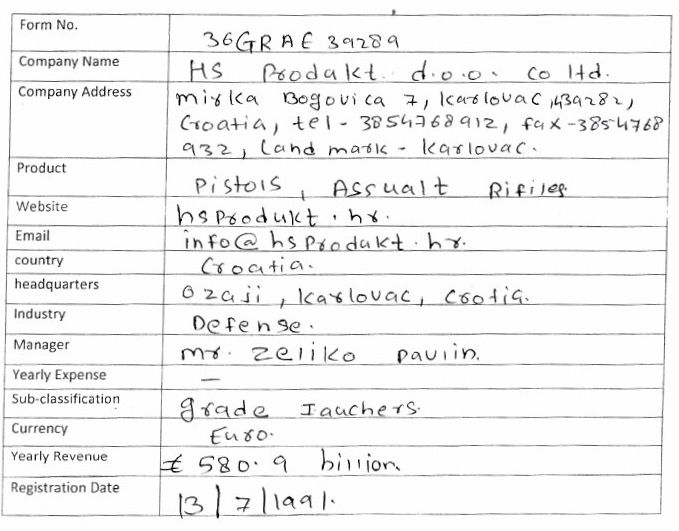 Form No. 36GRAE39289
Company Name HS Produkt d.o.o. co ltd.
Company Address mirka Bogovica 7, karlovac, 439282,
Croatia, tel - 3854768912, fax - 3854768
932, Land mark - karlovac.
Product Pistols, Assualt Rifiles
Website hsprodukt.hr.
Email info@hsprodukt.hr.
country Croatia.
headquarters Ozalji, karlovac, Crotia.
Industry Defense.
Manager mr. Zeliko pavlin.
Yearly Expense —
Sub-classification grade Iauchers.
Currency Euro.
Yearly Revenue € 580.9 billion
Registration Date 13/7/1991.